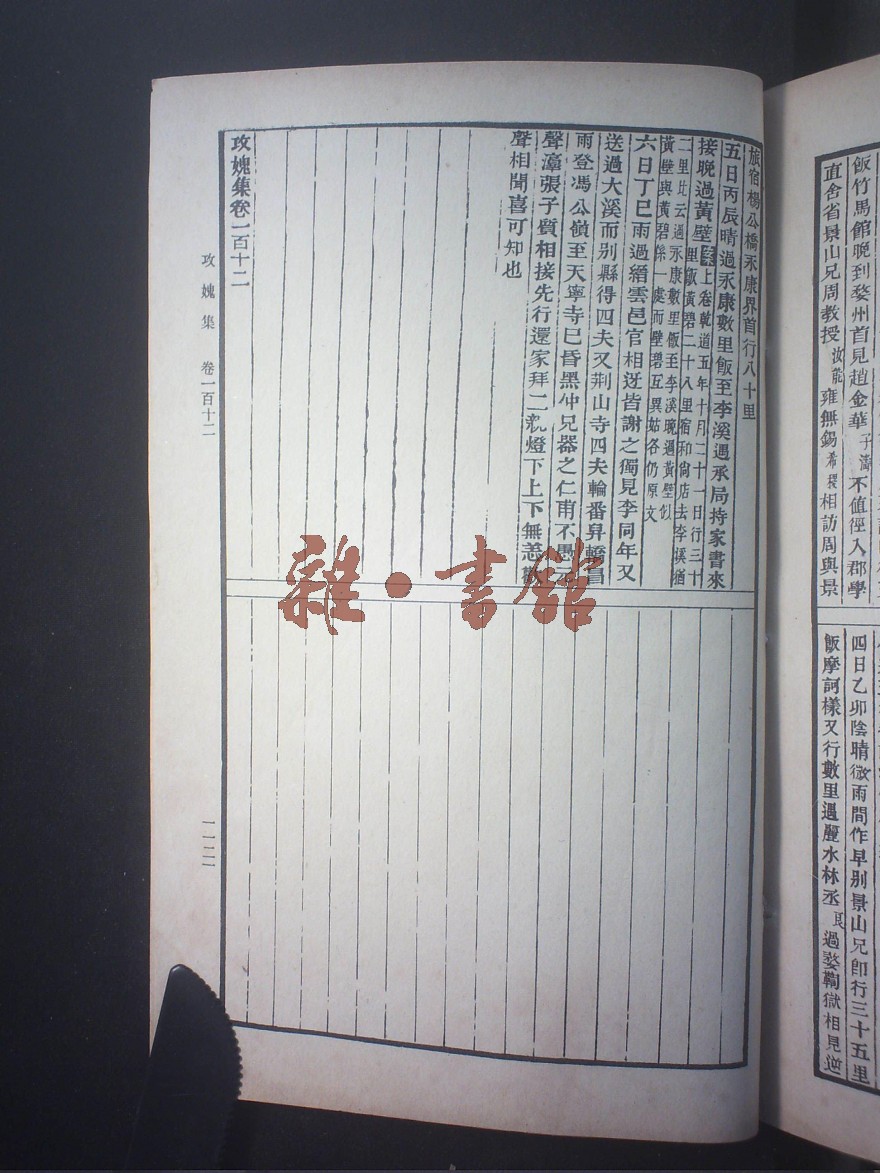 飯竹馬館晚到婺州首見趙金華子濤不值徑入郡學
直舍省景山兄周教授汝能雍無錫希稷相訪周與景
四日乙卯陰晴微雨間作早別景山兄卽行三十五里
飯摩訶樣又行數里遇麗水林丞長過婺鞫獄相見逆
旅宿楊公橋永康界首行八十里
五日丙辰晴過永康數里飯至李溪遇承局持家書來
接晚過黃壁案上卷乾道五年十月二十一日行三十
里飯黃碧二十八里宿和尙店去李溪猶
二里此云過永康數里飯至李溪晚過黃壁似
黃壁與黃碧係一處而壁碧互異姑各仍原文
六日丁巳雨過縉雲邑官相迓皆謝之獨見李同年又
送過大溪而別縣得四夫又荆山寺四夫輪番舁轎冒
雨登馮公嶺至天寧寺已昏黑仲兄器之仁甫不愚
聲濤張子質相接先行還家拜二親燈下上下無恙歡
聲相聞喜可知也
攻媿集卷一百十二
攻媿集 卷一百十二
一一二二
雜·書館